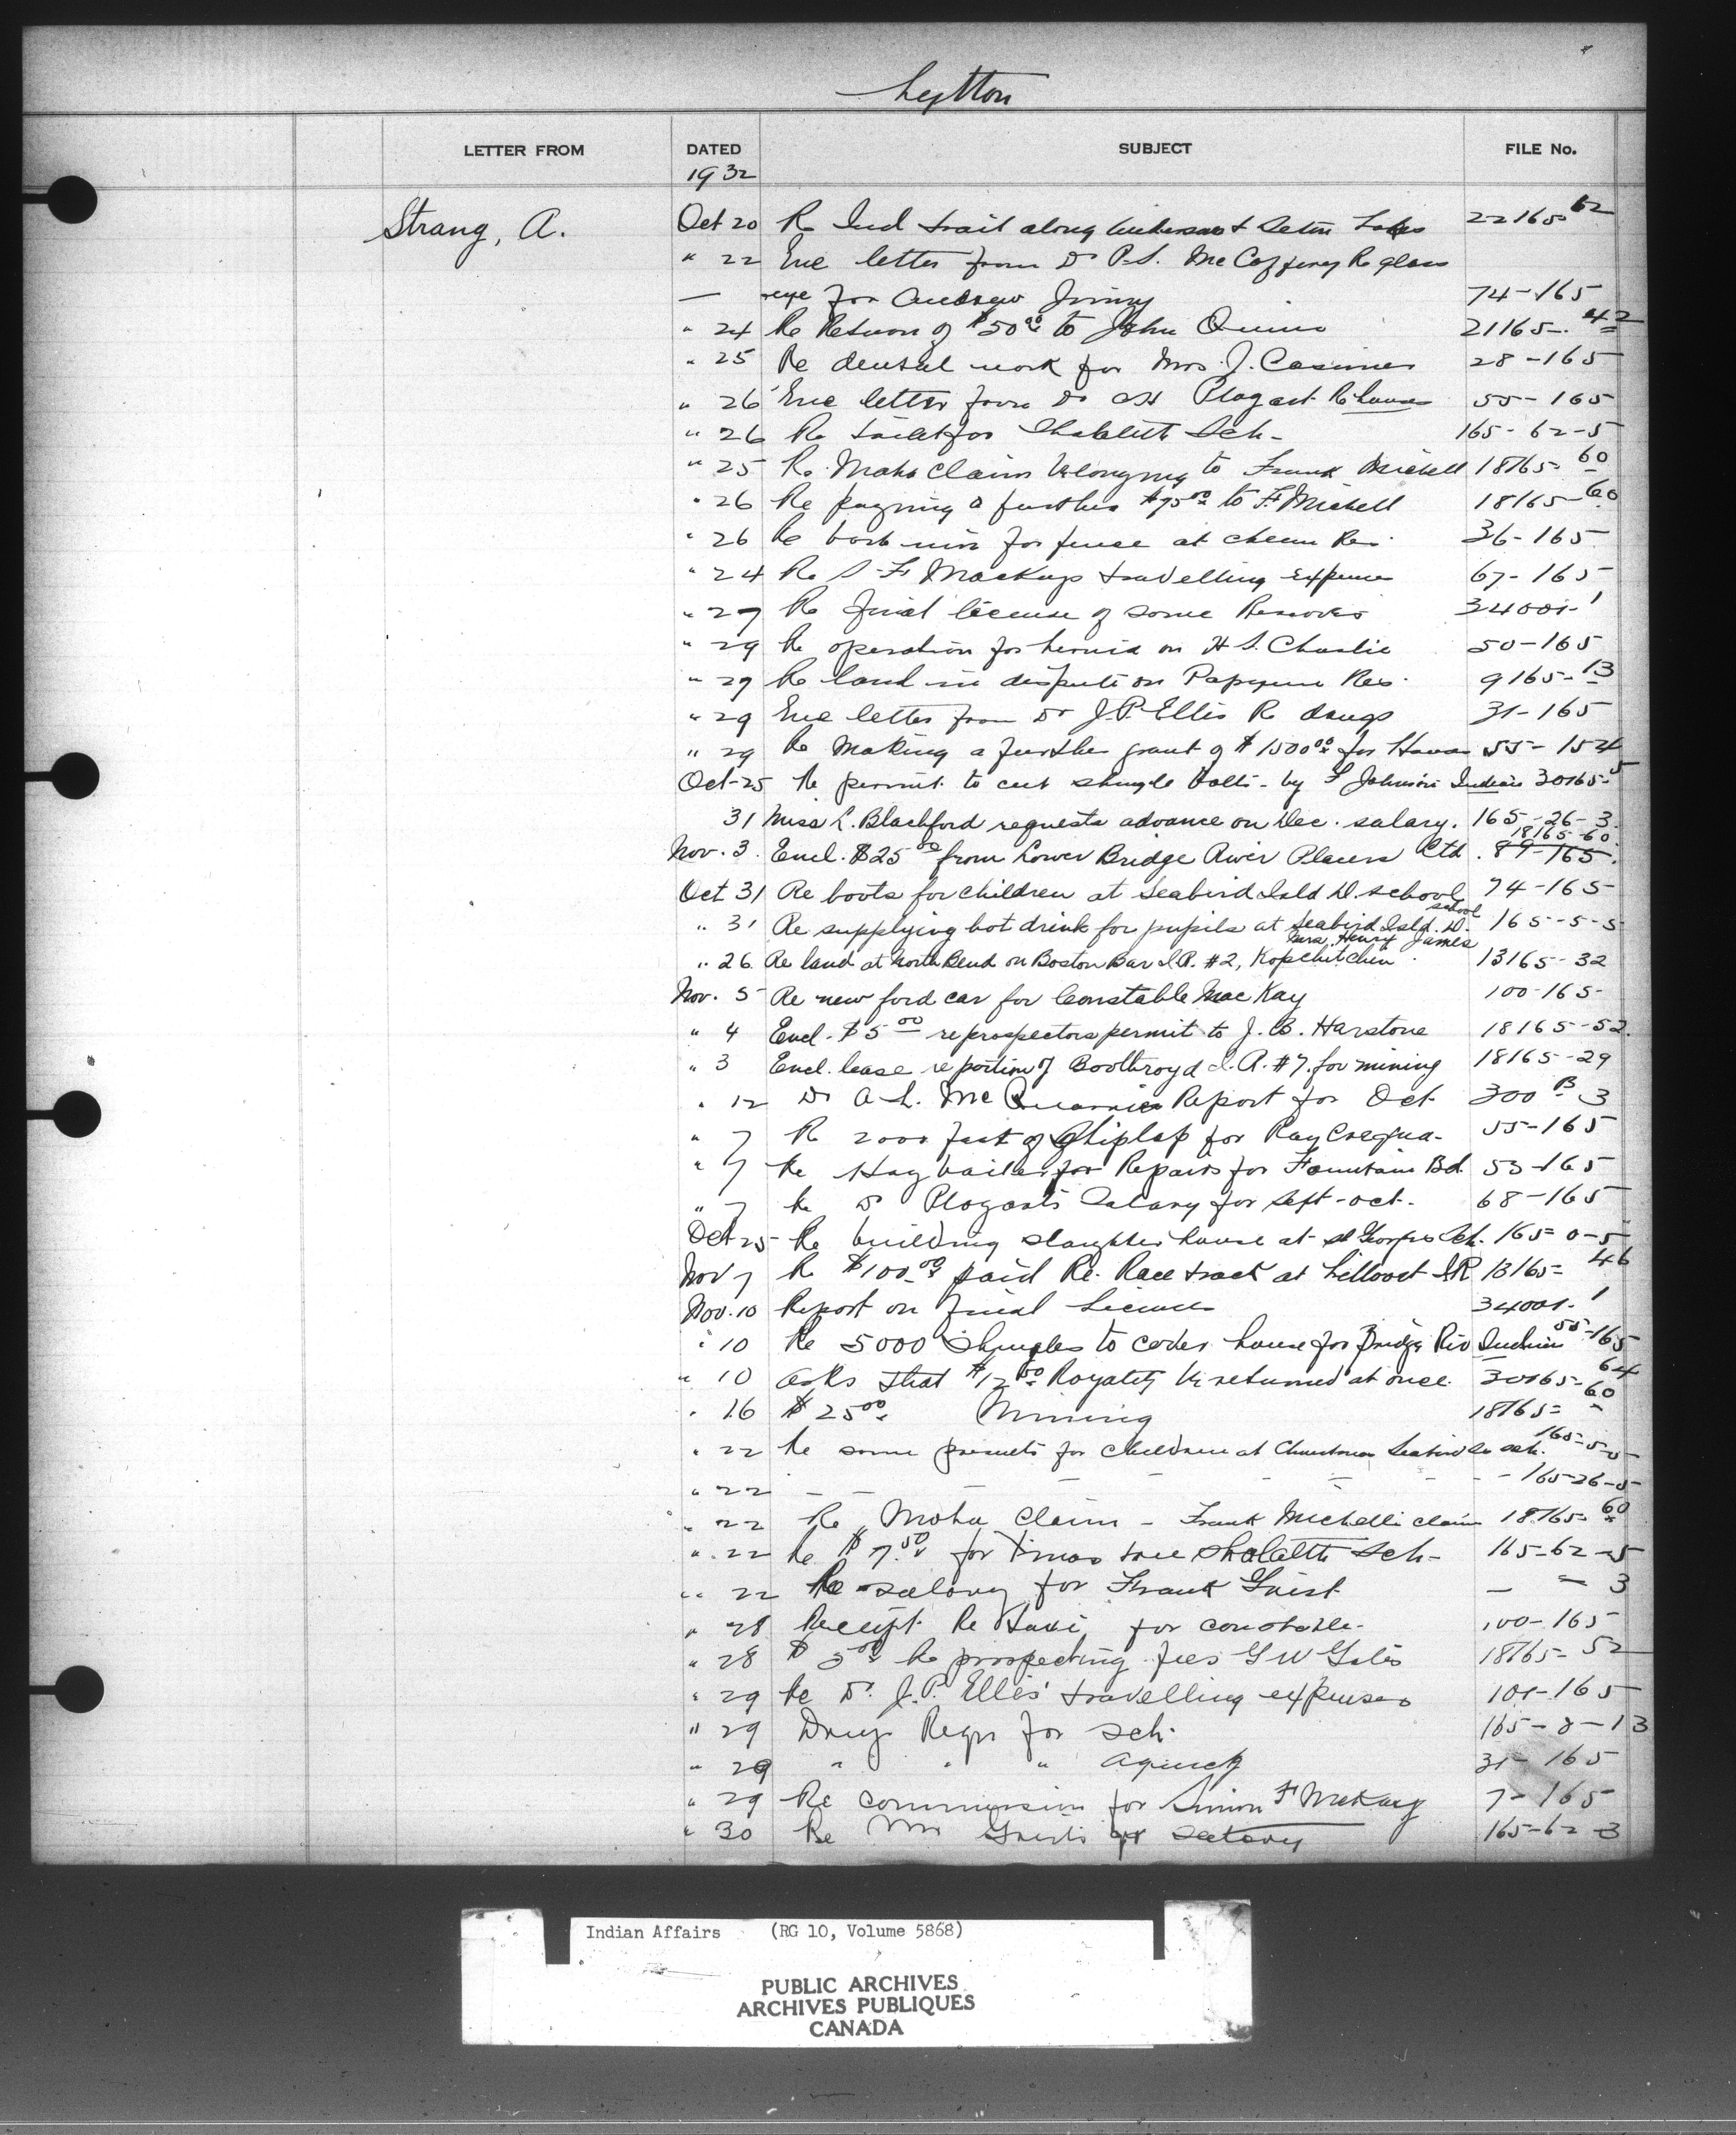 Lytton
LETTER FROM DATED SUBJECT FILE No.
1932
Strang, A. Oct 20 Re Ind trail along & Seton Lakes 22165-62
" 22 Enc letter from Dr P.S. McCaffrey Re glass
— eye for Andrew Jimmy 74-165
" 24 Re Return of $50.00 to John Quinn 21165-42
" 25 Re dental work for Mrs. J. Casimer 28-165
" 26 Enc letter from Dr Plogart Re house 55-165
" 26 Re toilet for Shalalth Sch- 165-62-5
" 25 Re Moha Claim belonging to Frank Michell 18165-60
" 26 Re paying a further $75.00 to F. Michell 18165-60
" 26 Re barb wire for fence at Cheam Res. 36-165
" 24 Re S-F Mackays travelling expenses 67-165
" 27 Re final license of some Reserves 34001-1
" 29 Re operation for hernia on H S. Charlie 50-165
" 29 Re land in dispute on Papyum Res. 9165-13
" 29 Enc letter from Dr J.P. Ellis Re drugs 31-165
" 29 Re Making a further grant of $1500.00 for 55-154
Oct-25 Re permit to cut shingle bolts - by F Johnson Indian 30165-5
31 Miss L. Blachford requests advance on Dec. salary. 165-26-3
18165-60
Nov. 3 Encl. $25.00 from Lower Bridge River Placers Ltd. 89-165
Oct 31 Re boots for children at Seabird Isld D. school 74-165
" 31 Re supplying hot drink for pupils at Seabird Isld. D. school 165-5-5
Mrs. Henry James
" 26 Re land at North Bend on Boston Bar I.R. #2, Kopchitchin. 13165-32
Nov. 5 Re new ford car for Constable MacKay 100-165-
" 4 Encl. $5.00 re prospectors permit to J. B. Harstone 18165-52.
" 3 Encl. lease re portion of Boothroyd I.R. #7. for mining 18165-29
" 12 Dr A-L. McQuarrie Report for Oct. 300 B 3
" 7 Re 2000 feet of Shiplap for Ray 55-165
" 7 Re Hay bailer for Repairs for Fountain Bd. 53-165
" 7 Re Dr Plogart's Salary for Sept-Oct. 68-165
Oct 25 Re building slaughter house at St Georges Sch. 165-0-5
Nov 7 Re $100.00 paid Re. Race track at Lillooet I.R 13165-46
Nov. 10 Report on final Licenses 34001-1
" 10 Re 5000 Shingles to cover house for Bridge Riv Indian 55-165
" 10 Asks that $12.50 Royalty be returned at once. 30165-64
" 16 $25.00 Mining 18165-60
" 22 Re some presents for children at Christmas Seabird Is sch. 165-5-5
" 22 — — — — — — 165-26-5
" 22 Re Moha Claim - Frank Michell's claim 18165-60
" 22 Re $7.50 for Xmas tree Shalalth Sch- 165-62-5
" 22 Re salary for Frank Guest — = 3
" 28 Receipt Re taxi for constable- 100-165
" 28 $5.00 Re prospecting fees G W Gates 18165-52
" 29 Re Dr. J.P. Ellis' travelling expenses 101-165
" 29 Drug Reqn for sch. 165-8-13
" 29 " " " Agency 31-165
" 29 Re commission for Simon F McKay 7-165
" 30 Re Mrs salary 165-62-3
Indian Affairs (RG 10, Volume 5868)
PUBLIC ARCHIVES
ARCHIVES PUBLIQUES
CANADA